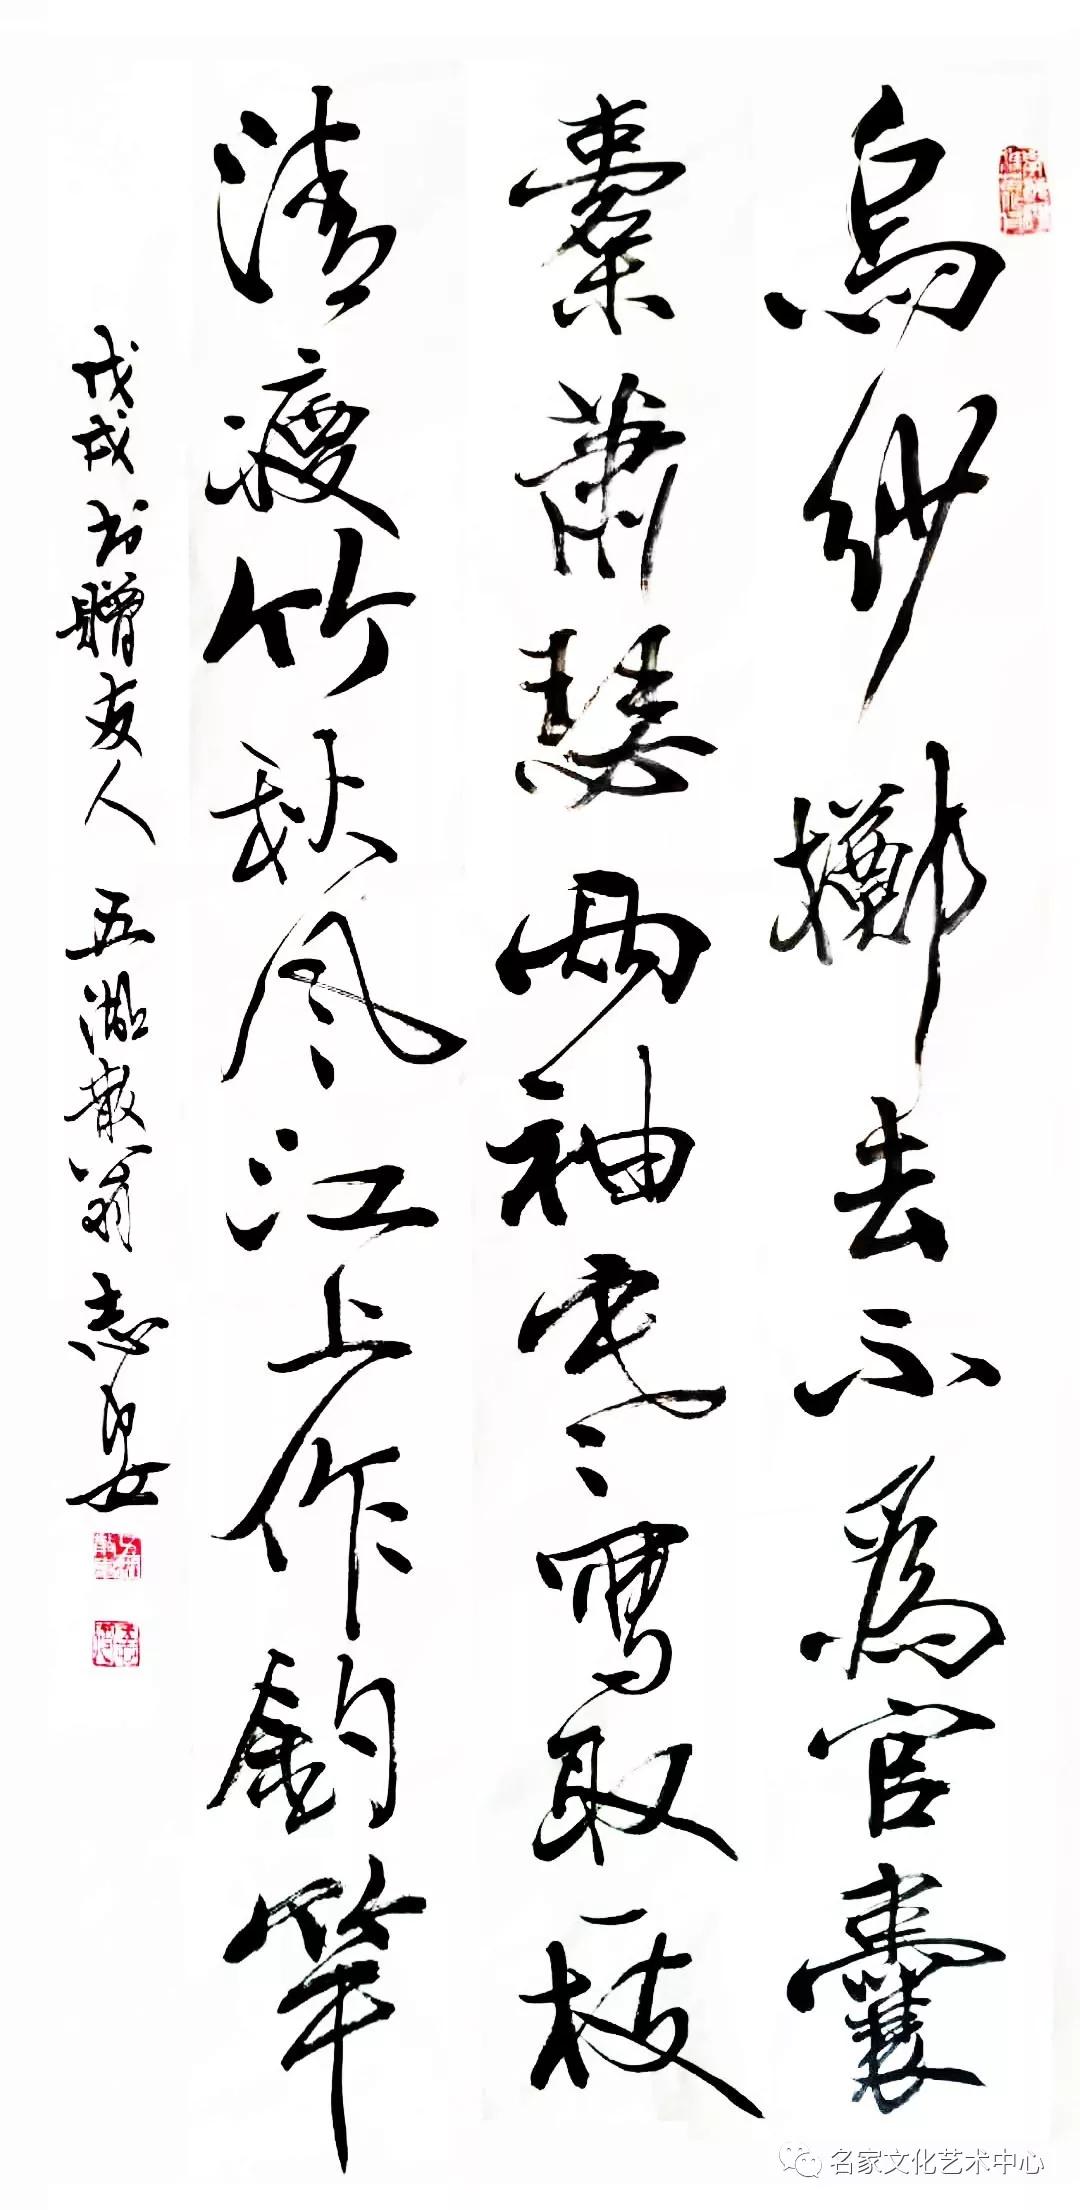 烏紗擲去不為官囊
橐蕭瑟兩袖寒寫取一枝
清瘦竹秋風江上作釣竿
戊戌书贈友人 五湖散翁志
名家文化艺术中心